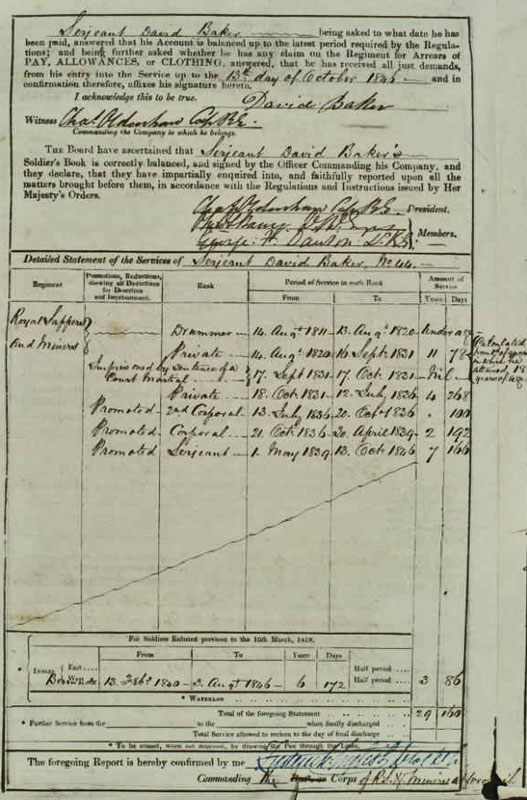 Serjeant David Baker being asked to what date he has
been paid, answered that his Account is balanced up to the latest period required by the Regula-
tions; and being further asked whether he has any claim on the Regiment for Arrears of
PAY, ALLOWANCES, or CLOTHING, answered, that he has received all just demands,
from his entry into the Service up to the 13th day of October 1846 and in
confirmation therefore, affixes his signature hereto.
I acknowledge this to be true. David Baker
Witness Chas Oldershaw Capt R.E.
Commanding the Company to which he belongs.
THE BOARD have ascertained that Serjeant David Baker's
Soldier's Book is correctly balanced, and signed by the Officer Commanding his Company, and
they declare, that they have impartially enquired into, and faithfully reported upon all the
matters brought before them, in accordance with the Regulations and Instructions issued by Her
Majesty's Orders.
Chas Oldershaw Capt R.E. President.
Members.
Detailed Statement of the Services of Serjeant David Baker, No 44.
Regiment Promotions, Reductions, shewing all Deductions for Desertion and Imprisonment. Rank Period of Service in each Rank Amount of Service
From To Years Days
Royal Sappers and Miners
Drummer 14 Augt 1811 13 Augt 1820 Under age
Private 14 Augt 1820 16 Sept 1831 11 78
Imprisoned by Sentence of a Court Martial 17 Sept 1831 17 Oct 1831 Nil
Private 18 Oct 1831 12 July 1836 4 268
Promoted 2nd Corporal 13 July 1836 20 Oct 1836 100
Promoted Corporal 21 Oct 1836 30 April 1839 2 192
Promoted Serjeant 1 May 1839 13 Oct 1846 7 166
attained 18 years of age
For Soldiers Enlisted previous to the 15th March, 1818.
From To Years Days
East Half period
13 Feby 1840 3 Augt 1846 6 172 Half period 3 86
* WATERLOO
Total of the foregoing Statement 29 160
* Further Service from the to the when finally discharged
Total Service allowed to reckon to the day of final discharge
* To be erased, when not required, by drawing the Pen through the Lines.
The foregoing Report is hereby confirmed by me
Commanding the Corps of Rl S. & Miners at